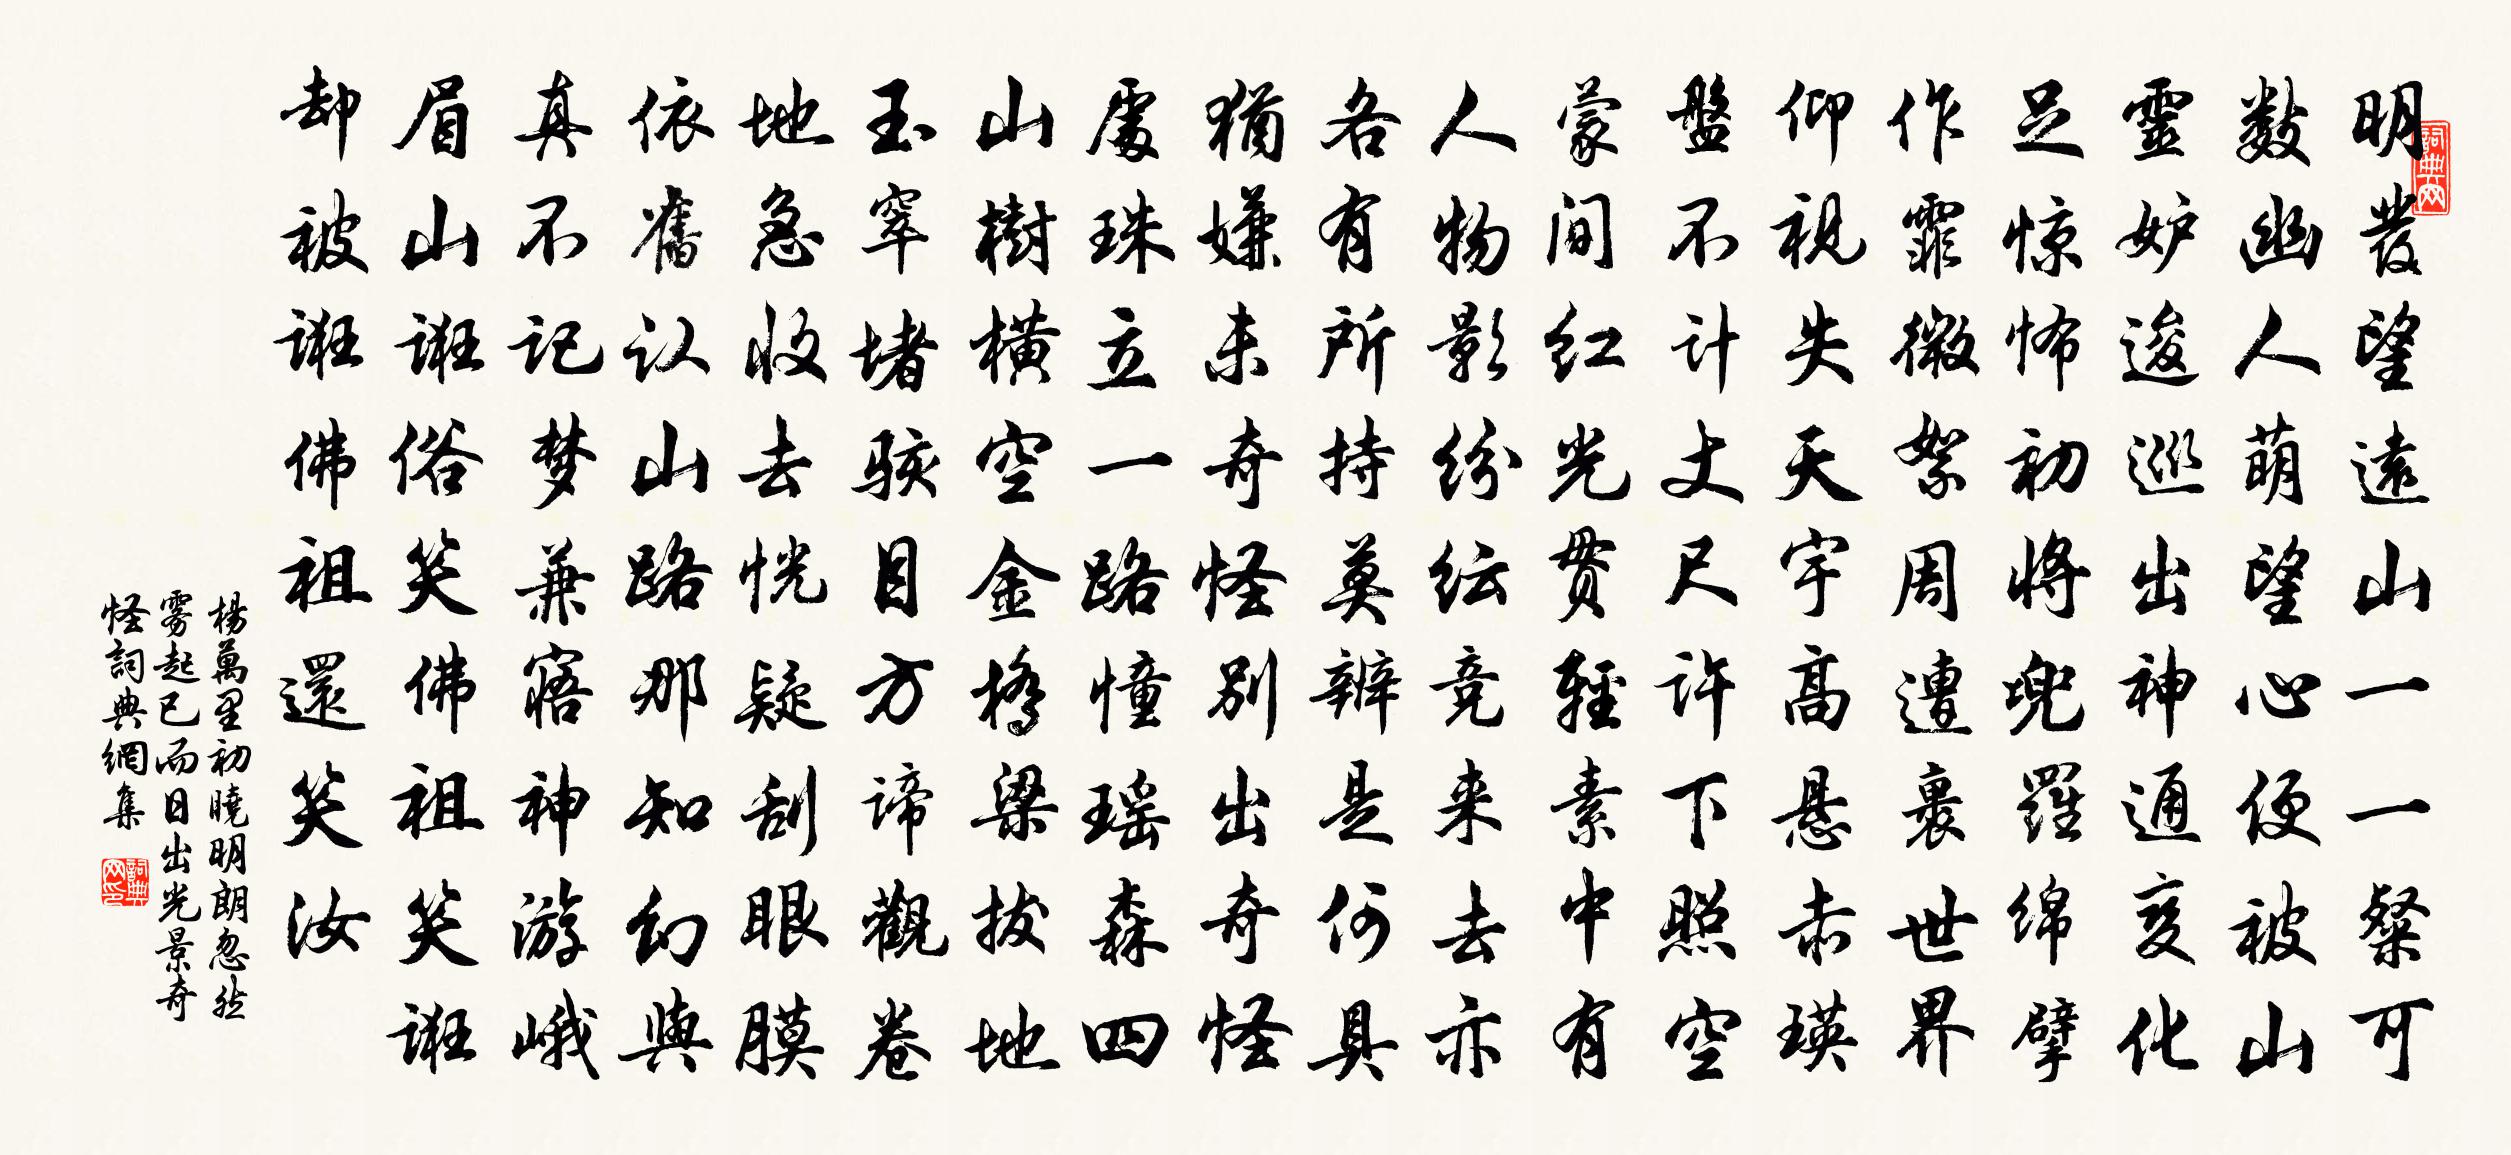 明發望遠山一一粲可
數幽人萌望心便被山
靈妒逡巡出神通变化
足惊怖初將兜羅绵擘
作霏微絮周遭裹世界
仰視失天宇高悬赤瑛
盤不计丈尺許下照空
蒙间红光贯輕素中有
人物影纷纭竞来去亦
各有所持莫辨是何具
猶嫌未奇怪别出奇怪
處珠立一路幢瑶森四
山樹横空金橋梁拔地
玉窣堵骇目方谛觀卷
地急收去恍疑刮眼膜
依舊认山路那知幻與
真不记梦兼寤神游峨
眉山诳俗笑佛祖笑诳
却被诳佛祖還笑汝
楊萬里初曉明朗忽然
雾起已而日出光景奇
怪詞典網集
詞典网
詞典网印